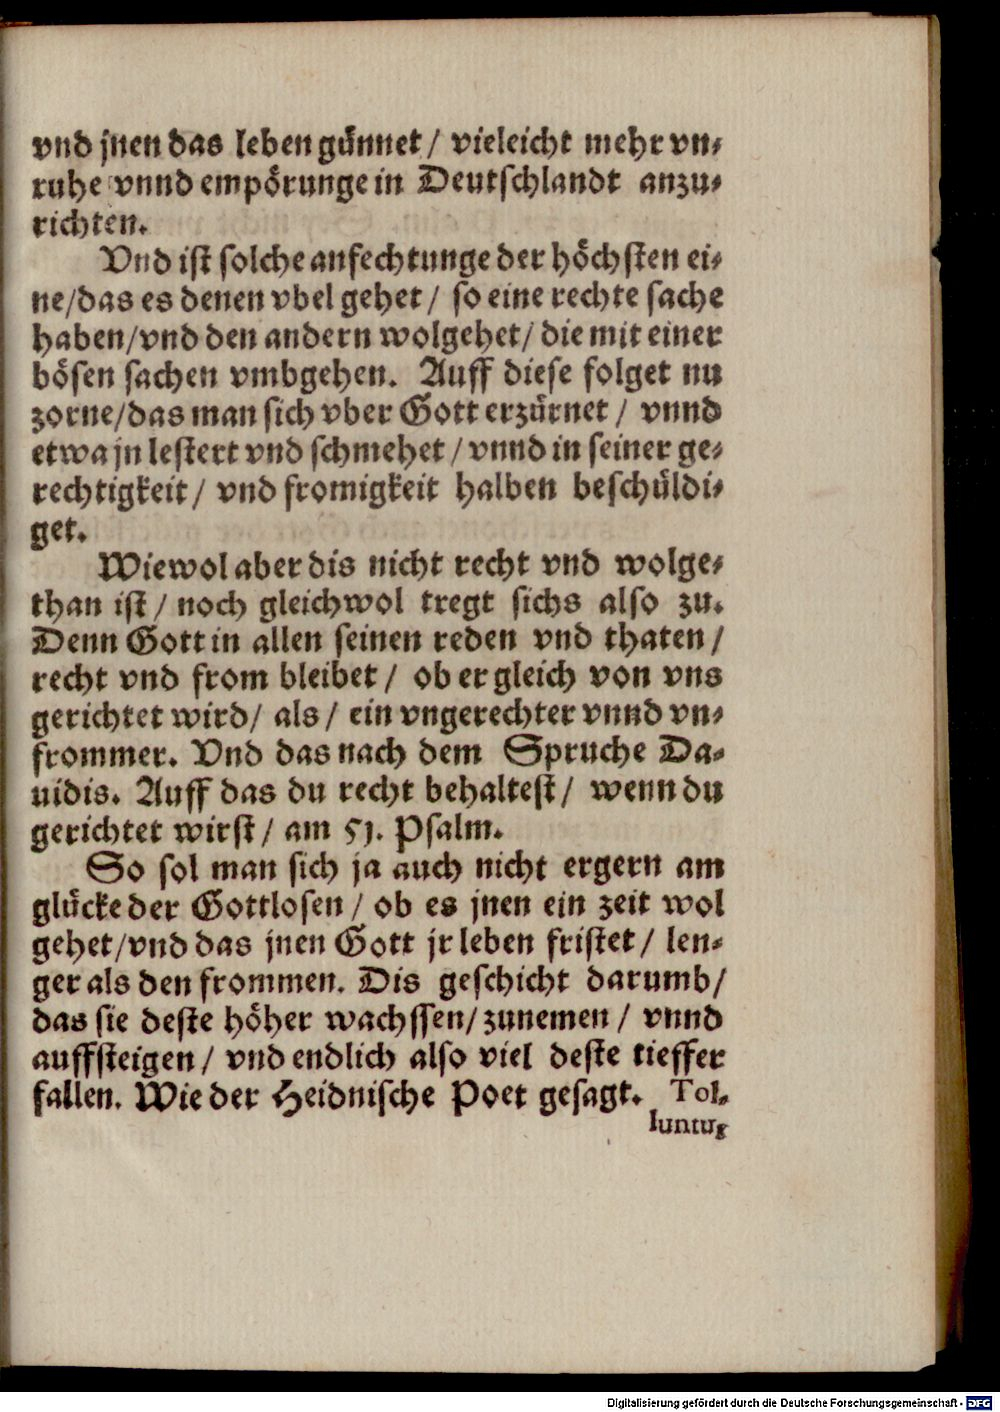 vnd jnen das leben günnet / vieleicht mehr vn⸗
ruhe vnnd empörunge in Deutschlandt anzu⸗
richten.
Vnd ist solche anfechtunge der höchsten ei⸗
ne/das es denen vbel gehet / so eine rechte sache
haben/vnd den andern wolgehet/ die mit einer
bösen sachen vmbgehen. Auff diese folget nu
zorne/das man sich vber Gott erzürnet / vnnd
etwa jn lestert vnd schmehet / vnnd in seiner ge⸗
rechtigkeit / vnd fromigkeit halben beschüldi⸗
get.
Wiewol aber dis nicht recht vnd wolge⸗
than ist / noch gleichwol tregt sichs also zu.
Denn Gott in allen seinen reden vnd thaten /
recht vnd from bleibet / ob er gleich von vns
gerichtet wird/ als / ein vngerechter vnnd vn⸗
frommer. Vnd das nach dem Spruche Da⸗
uidis. Auff das du recht behaltest / wenn du
gerichtet wirst / am 51. Psalm.
So sol man sich ja auch nicht ergern am
glücke der Gottlosen / ob es jnen ein zeit wol
gehet/vnd das jnen Gott jr leben fristet / len⸗
ger als den frommen. Dis geschicht darumb/
das sie deste höher wachssen/ zunemen / vnnd
auffsteigen / vnd endlich also viel deste tieffer
fallen. Wie der Heidnische Poet gesagt. Tol⸗
luntur
Digitalisierung gefördert durch die Deutsche Forschungsgemeinschaft - DFG